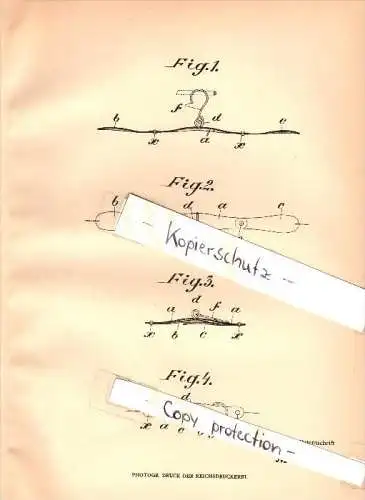 Fig.1.
f
d
b x a x c
Fig.2.
b d a c
Kopierschutz -
Fig.3.
d
a f a
x b c x
Fig.4.
d
Copy protection -
x a c
PHOTOGR. DRUCK DER REICHSDRUCKEREI.